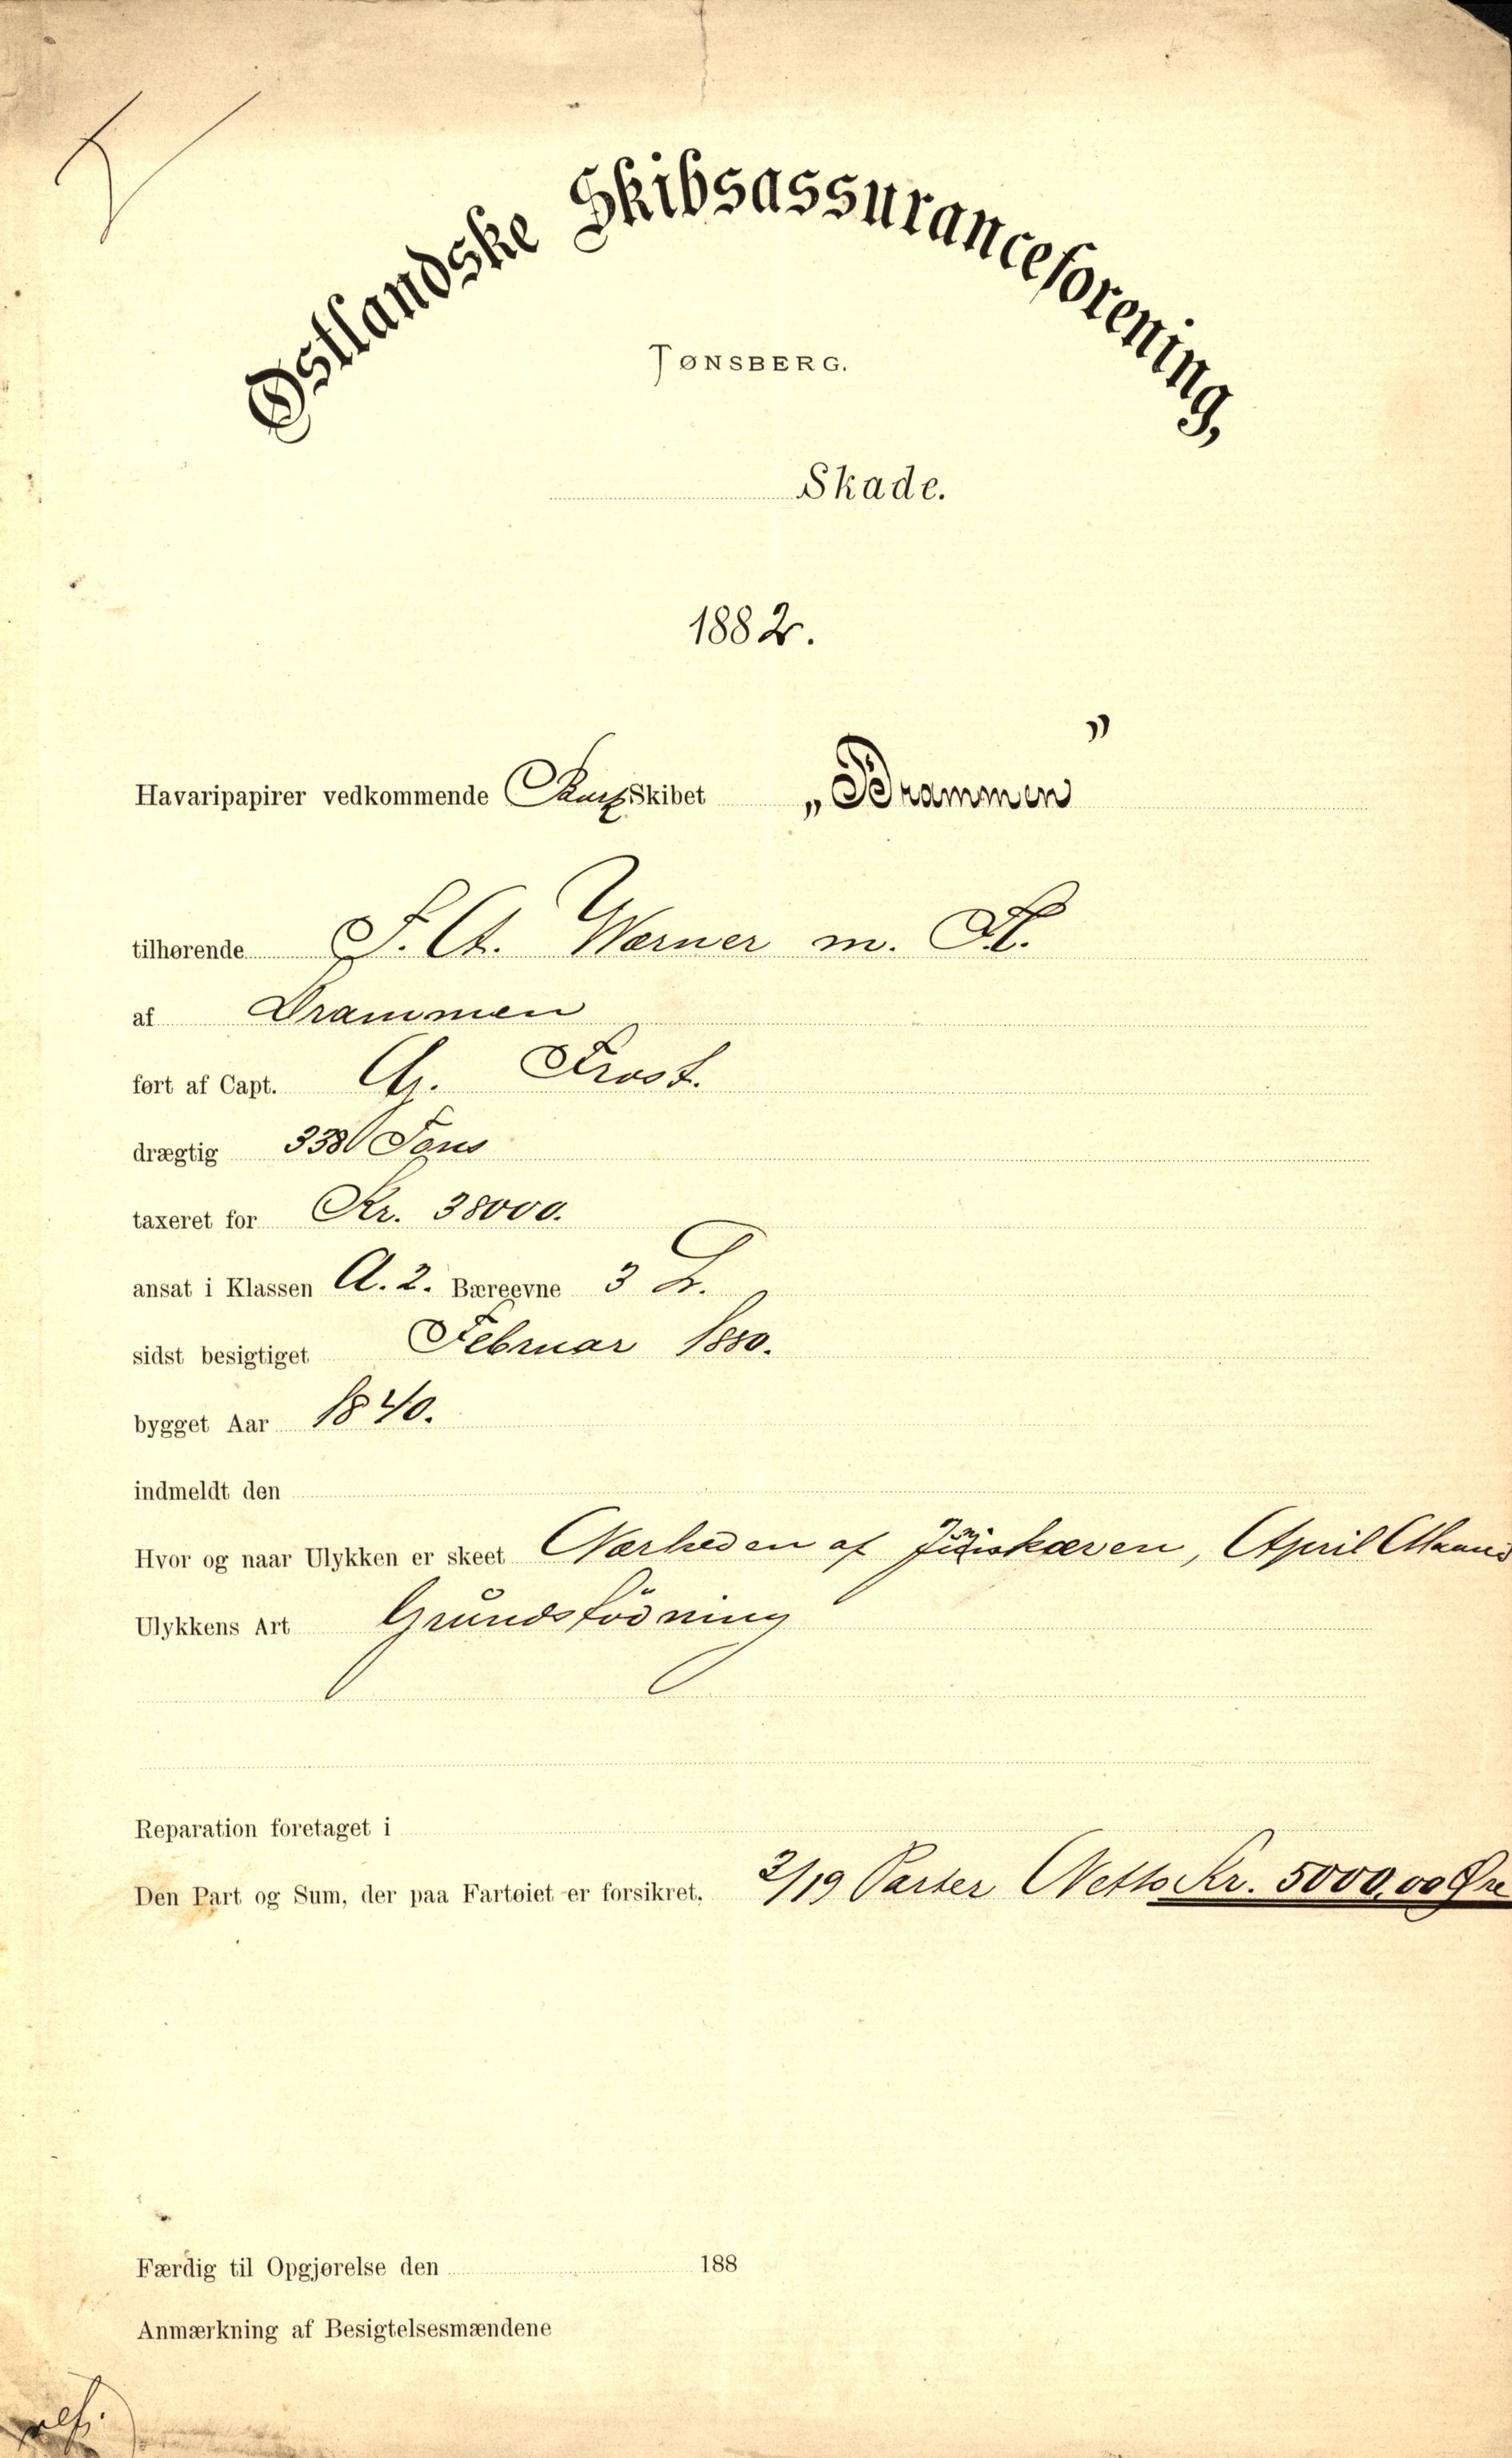 Østlandske Skibsassuranceforening,
TØNSBERG.
Skade.
1882.
Havaripapirer vedkommende Skibet „Drammen”
tilhørende Werner m. Fl.
af Drammen
ført af Capt. G. Frost.
drægtig 338 Tons
taxeret for Kr. 38000.
ansat i Klassen A. 2. Bæreevne 3
sidst besigtiget Februar 1880.
bygget Aar 1840.
indmeldt den
Hvor og naar Ulykken er skeet Nærheden af, April Maaned
Ulykkens Art Grundstødning
Reparation foretaget i
Den Part og Sum, der paa Fartøiet er forsikret. /19 Parter Netto Kr. 5000,00 Øre
Færdig til Opgjørelse den 188
Anmærkning af Besigtelsesmændene